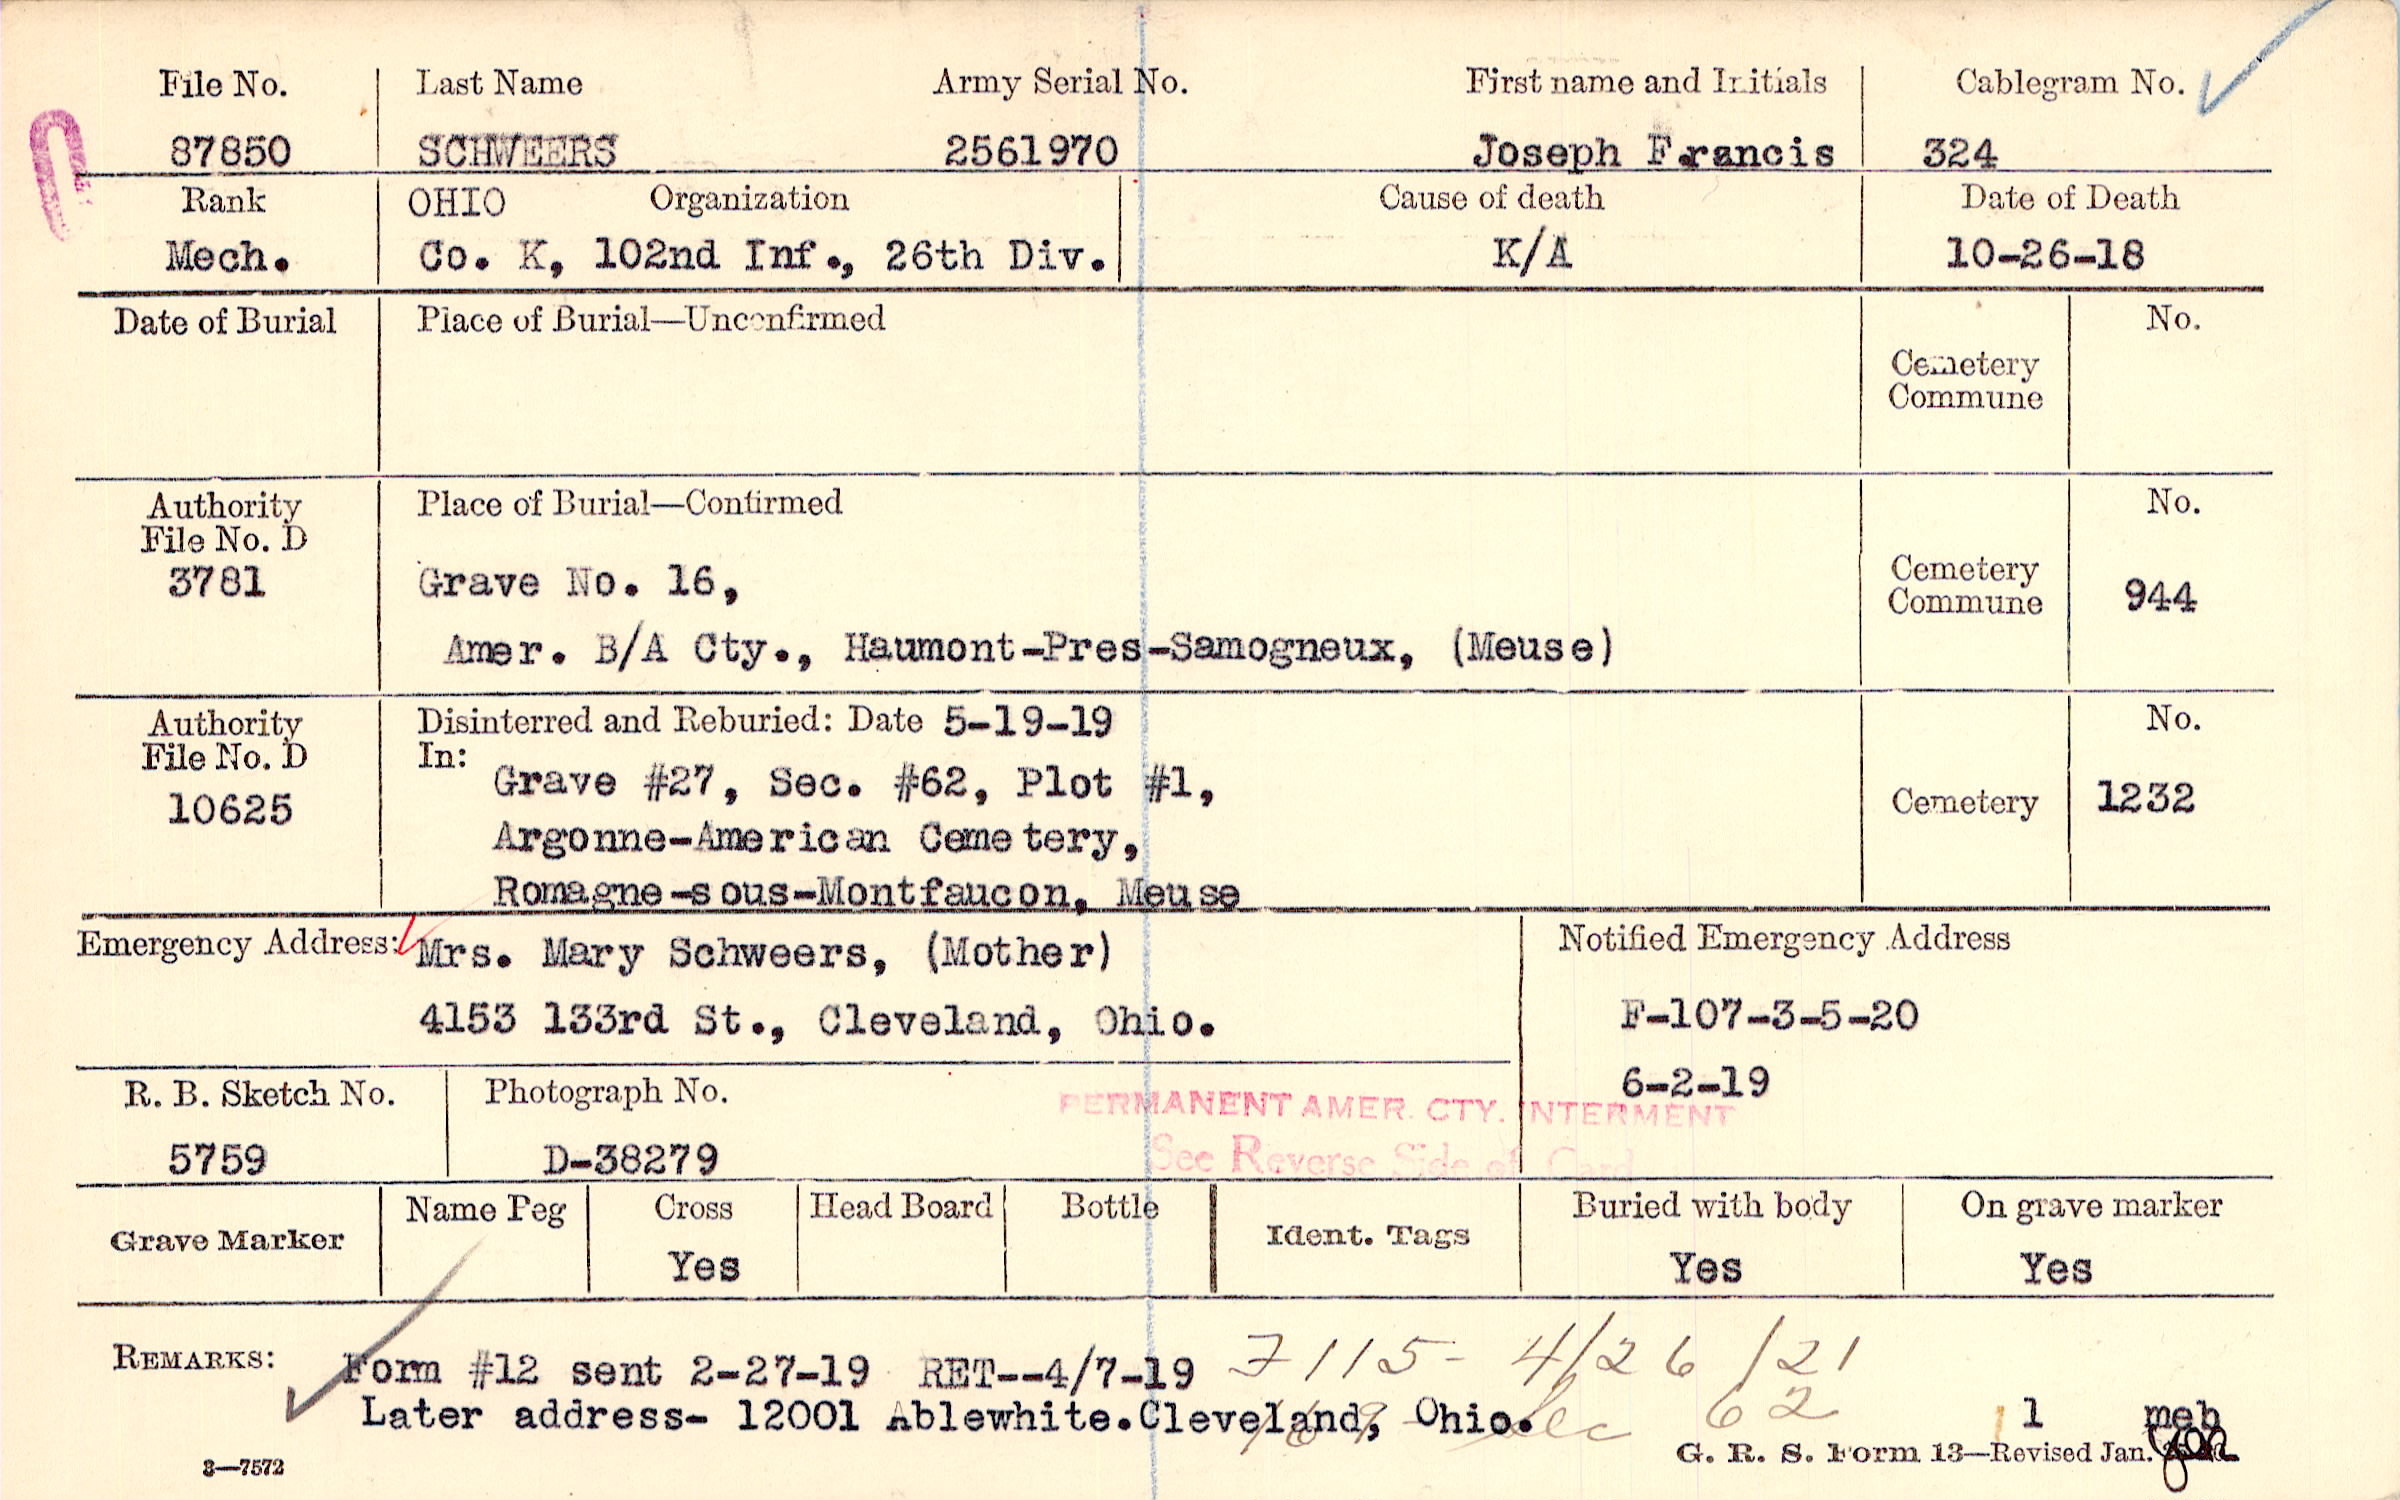 File No. Last Name Army Serial No. First name and Initials Cablegram No.
87850 SCHWEERS 2561970 Joseph Francis 324
Rank OHIO Organization Cause of death Date of Death
Mech. Co. K, 102nd Inf., 26th Div. K/A 10-26-18
Date of Burial Place of Burial—Unconfirmed No.
Cemetery
Commune
Authority Place of Burial—Confirmed No.
File No. D
3781 Grave No. 16, Cemetery
Commune 944
Amer. B/A Cty., Haumont-Pres-Samogneux, (Meuse)
Authority Disinterred and Reburied: Date 5-19-19 No.
File No. D In:
10625 Grave #27, Sec. #62, Plot #1, Cemetery 1232
Argonne-American Cemetery,
Romagne-sous-Montfaucon, Meuse
Emergency Address: Mrs. Mary Schweers, (Mother) Notified Emergency Address
4153 133rd St., Cleveland, Ohio. F-107-3-5-20
6-2-19
R. B. Sketch No. Photograph No.
PERMANENT AMER. CTY. INTERMENT
See Reverse Side of Card
5759 D-38279
Grave Marker Name Peg Cross Head Board Bottle Ident. Tags Buried with body On grave marker
Yes Yes Yes
REMARKS: Form #12 sent 2-27-19 RET--4/7-19 7115- 4/26/21
Later address- 12001 Ablewhite.Cleveland, Ohio. Sec 62 1 meb
3—7572 G. R. S. Form 13—Revised Jan.